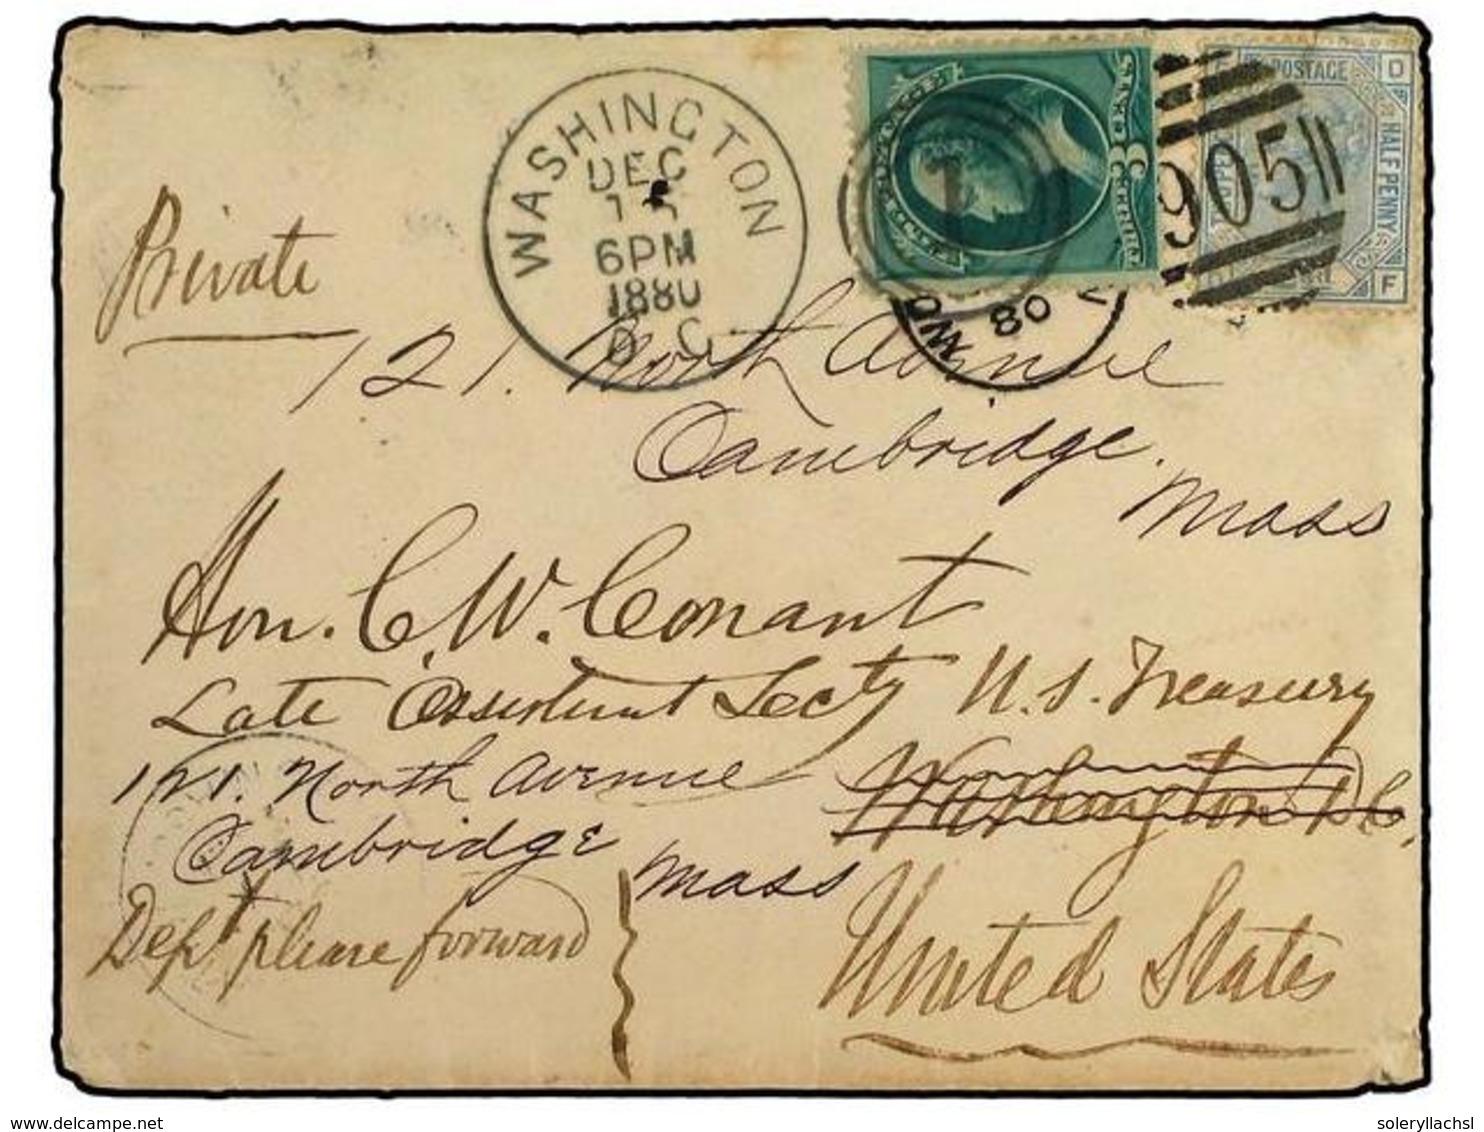 WASHINGTON
DEC
6PM
1880
D.C.
80
905
POSTAGE
D
HALF PENNY
F
Private
121. North Avenue
Cambridge.
Mass
Hon. C. W. Conant
Late Assistant Secty U.S. Treasury
121. North Avenue Washington D.C.
Cambridge
Mass
Dept please forward
United States
www.delcampe.net
soleryllachsl